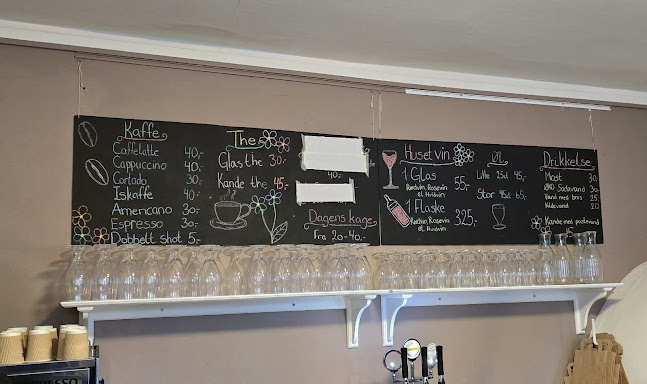 Kaffe
Caffelatte 40,-
Cappuccino 40,-
Cortado 30,-
Iskaffe 40,-
Americano 30,-
Espresso 30,-
Dobbelt shot 5,-
The
Glas the 30,-
Kande the 45,-
40,-
Dagens kage
Fra 20-40,-
Huset vin
1 Glas 55,-
Rødvin, Rosevin
el. Hvidvin
1 Flaske 325,-
Rødvin, Rosevin
el. Hvidvin
ØL
Lille 45,-
Stor 65,-
Drikkelse
Most
Sodavand
Vand med brus 25
Kande med postevand